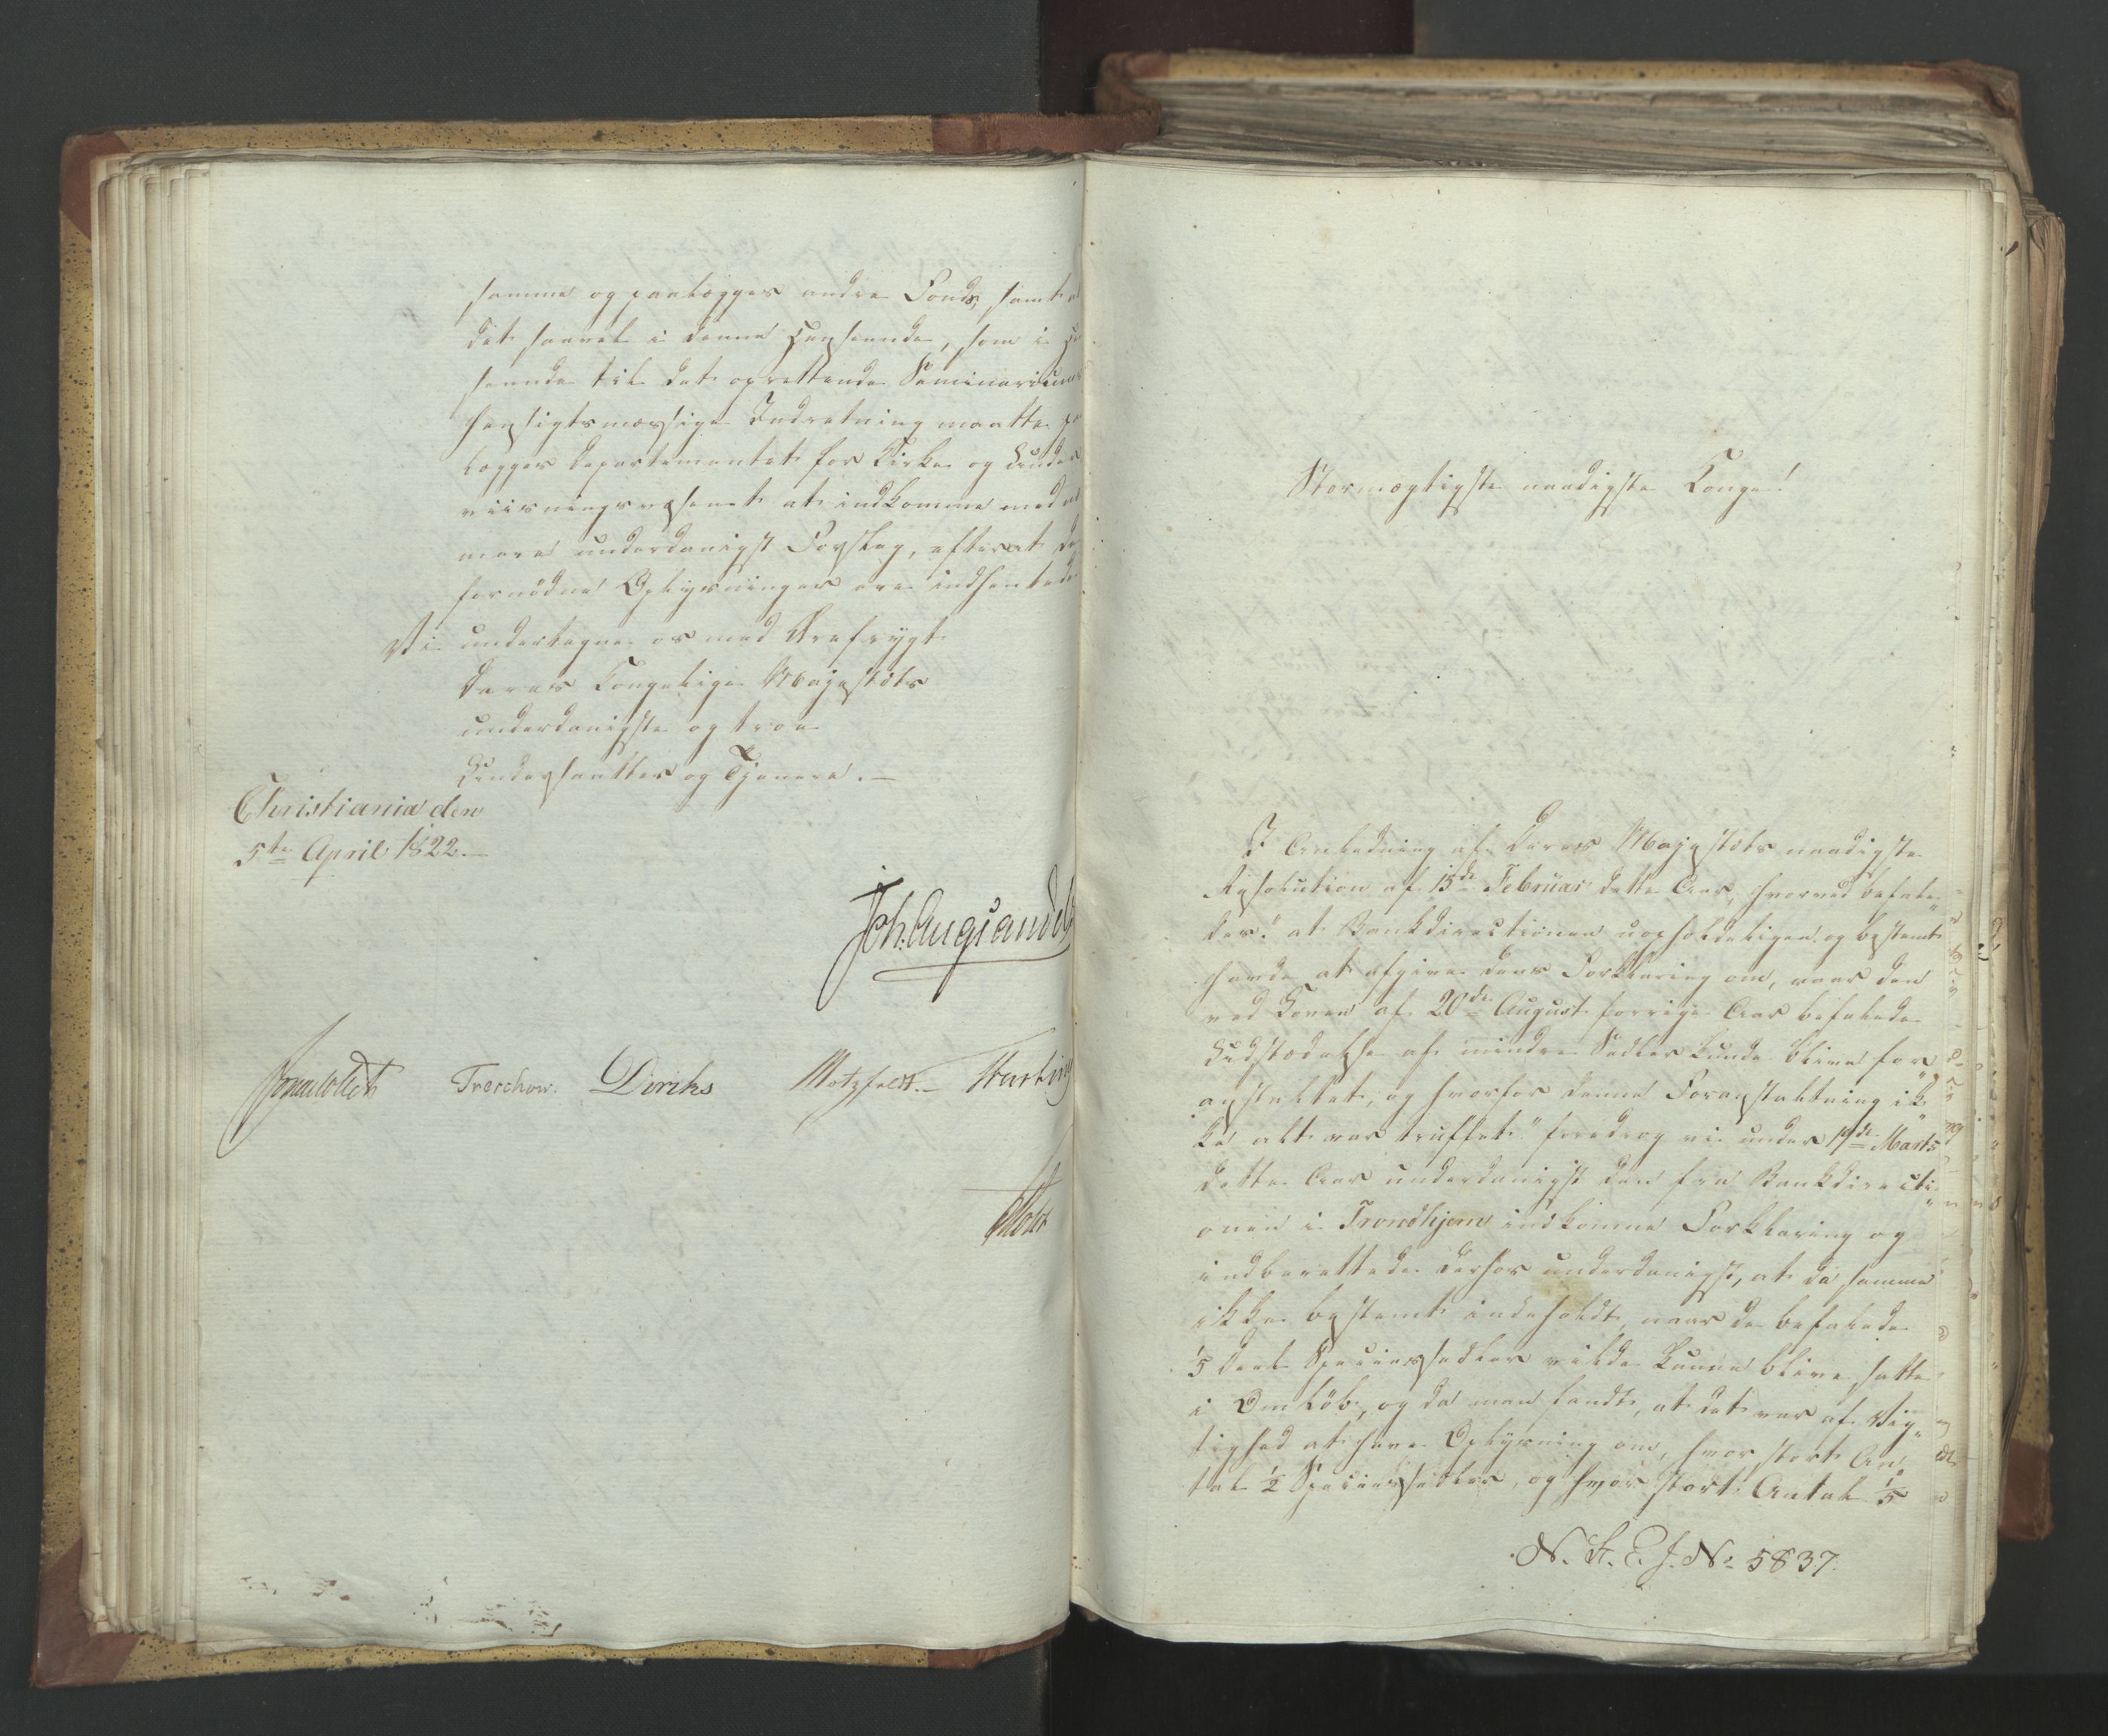 samme og paalægges andre Fonds, samt at
det saavel i denne Henseende, som i He
seende til det oprettende Seminariums
hensigtsmæssige Indretning maatte på
lægges Departementet for Kirke og Under
viisningsvæsenet at indkomme med 
mere underdanigst Forslag, efterat de
fornødne Oplysninger ere indhentede
Vi undertegne os med Ærefrygt
Deres Kongelige Majestæts
underdanigste og troe
Undersaatter og Tjenere.–
Christiania den
5te April 1822.–
Joh. Aug. Sandels
Jonas Collett Treschow. Diriks Motzfeldt.– Krebting
Holst
Stormægtigste naadigste Konge!
I Anledning af Deres Majestæts naadigste
Resolution af 15de Februar dette Aar, hvorved befale„
des: "at Bankdirectionen uopholdeligen og bestemt
havde at afgive dens Forklaring om, naar den
ved Loven af 20de August forrige Aar befalede
Udstædelse af mindre Sedler kunde blive for„
anstaltet, og hvorfor denne Foranstaltning ik„
ke alt var truffet" foredrog vi under 19de Marts
dette Aar underdanigst den fra Bankdirecti„
onen i Trondhjem indkomne Forklaring og
indberettede derhos underdanigst, at da samme
ikke bestemt indeholdt, naar de befalede
1/5 Deel Speciessedler vilde kunne blive satte
i Omløb, og da man fandt, at det var af Vig„
tighed at have Oplysning om, hvor stort An„
tal 1/2 Speciessedler, og hvor stort Antal 1/5
N. St. E. J. No 5837.